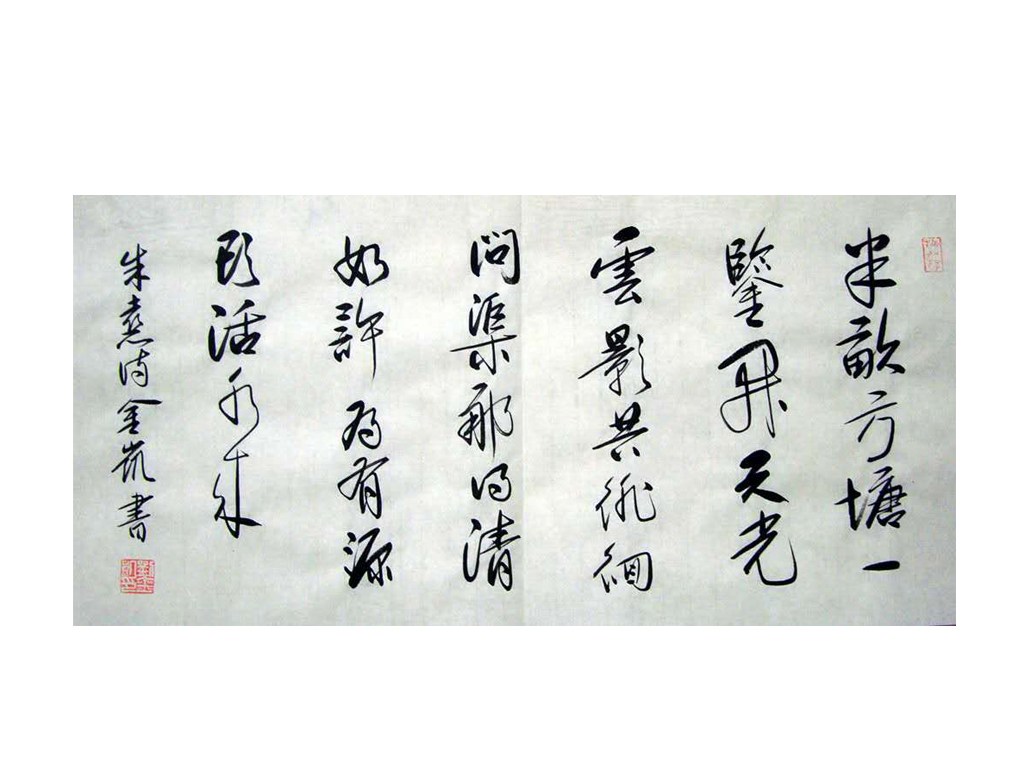 半畝方塘一
鑒開天光
雲影共徘徊
問渠那得清
如許為有源
頭活水來
朱熹诗金凯書